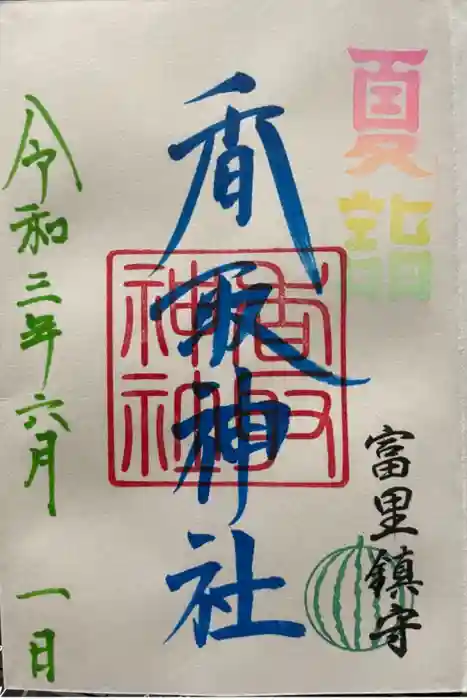 夏詣
富里鎮守
香取神社
香取神社
令和三年六月一日